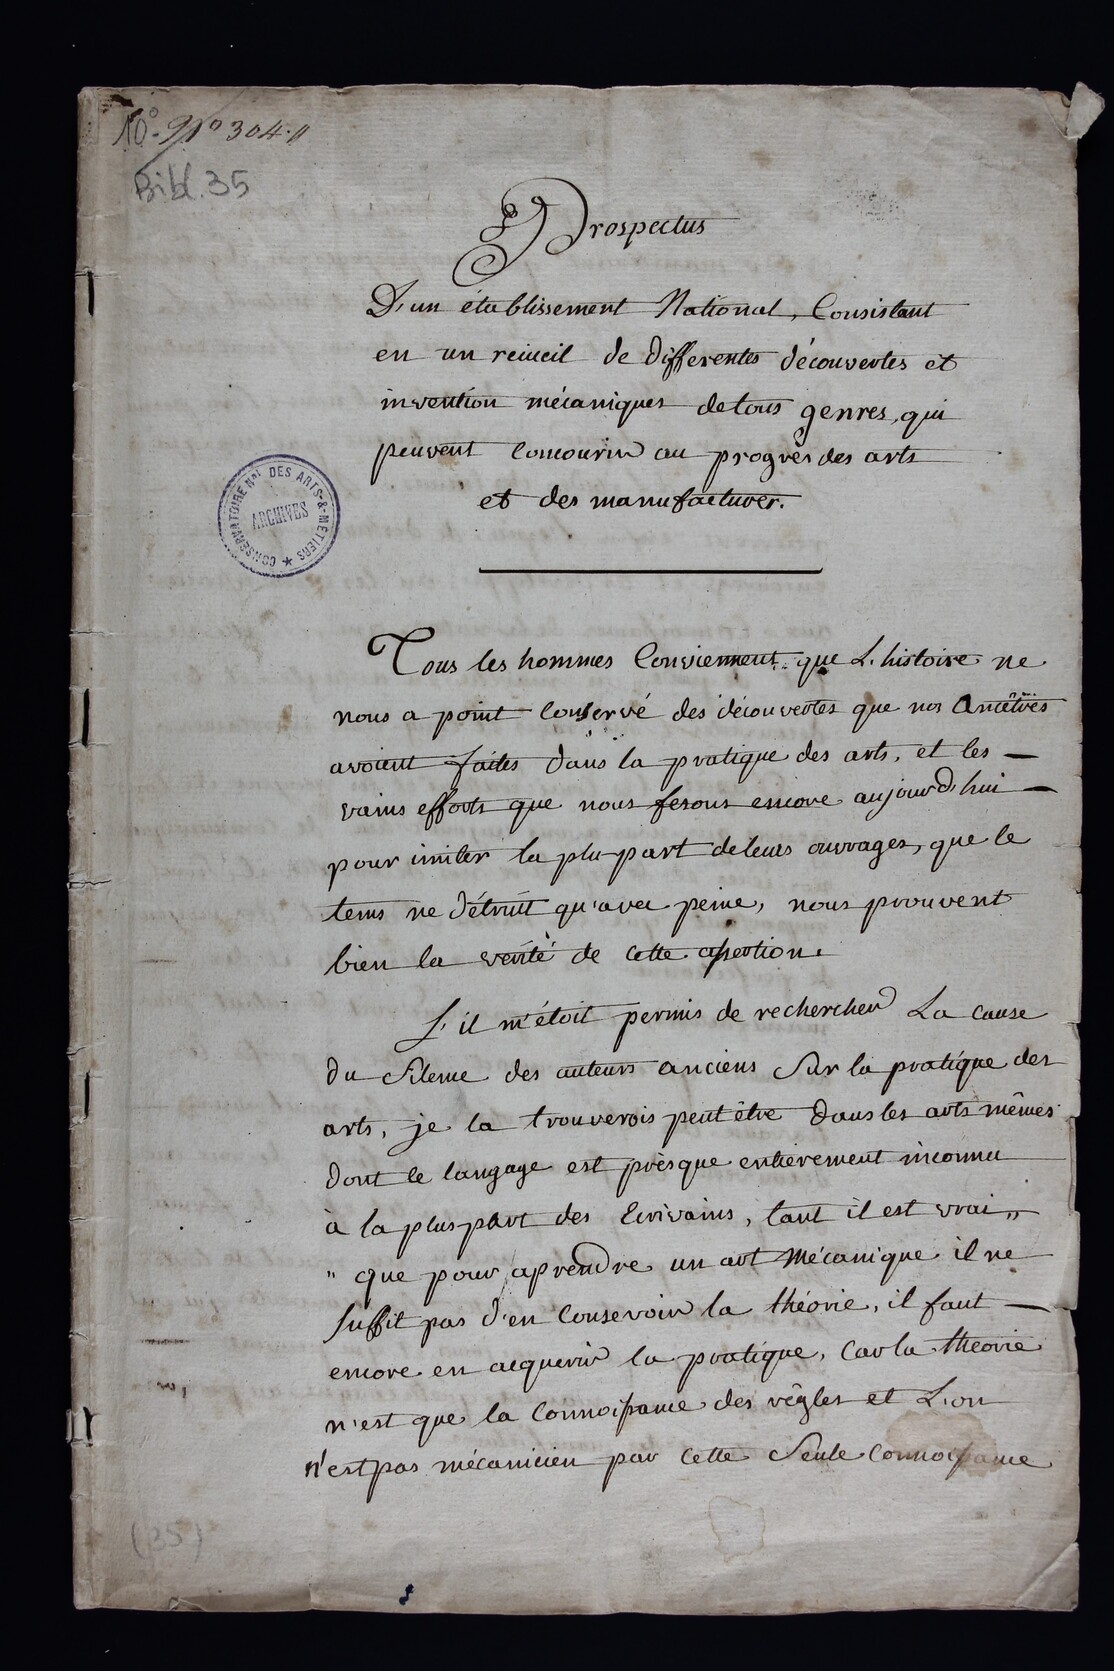 10°. N° 304.
Bibl. 35
Prospectus
D'un établissement National, Consistant
en un reiueil de differentes découvertes et
invention mécaniques de tous genres, qui
peuvent Concourir au progrès des arts
et des manufactures.
CONSERVATOIRE Nal DES ARTS & METIERS
ARCHIVES
Tous les hommes Conviennent que L'histoire ne
nous a point Conservé des découvertes que nos Ancêtres
avoient faites dans la pratique des arts, et les
vains efforts que nous fesons encore aujourd'hui
pour imiter la plu-part de leurs ouvrages, que le
tems ne détruit qu'avec peine, nous prouvent
bien la verité de cette assertion.
S'il m'étoit permis de rechercher La cause
du Silence des auteurs anciens Sur la pratique des
arts, je la trouverois peut être dans les arts mêmes
dont le langage est prèsque entièrement inconnu
à la plus part des Ecrivains, tant il est vrai „
" que pour aprendre un art Mécanique il ne
suffit pas d'en Consevoir la théorie, il faut
encore en acquerir la pratique, Car la theorie
n'est que la Connoissance des règles et L'on
n'est pas mécanicien par Cette Seule Connoissance
(35)